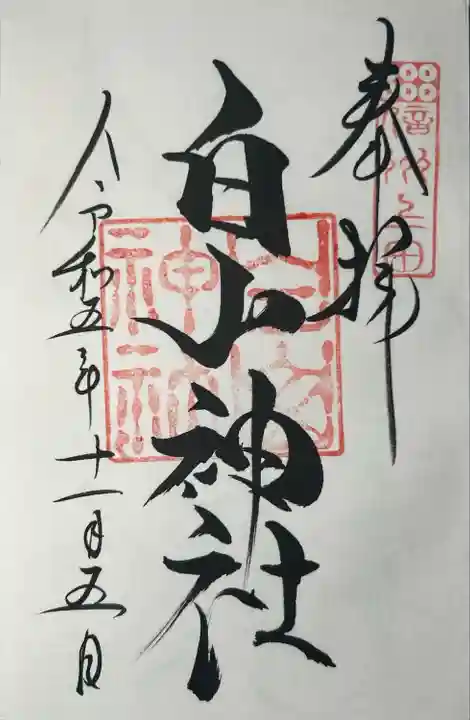 奉拝
信州上田
白山神社
白山神社
令和五年十一月五日